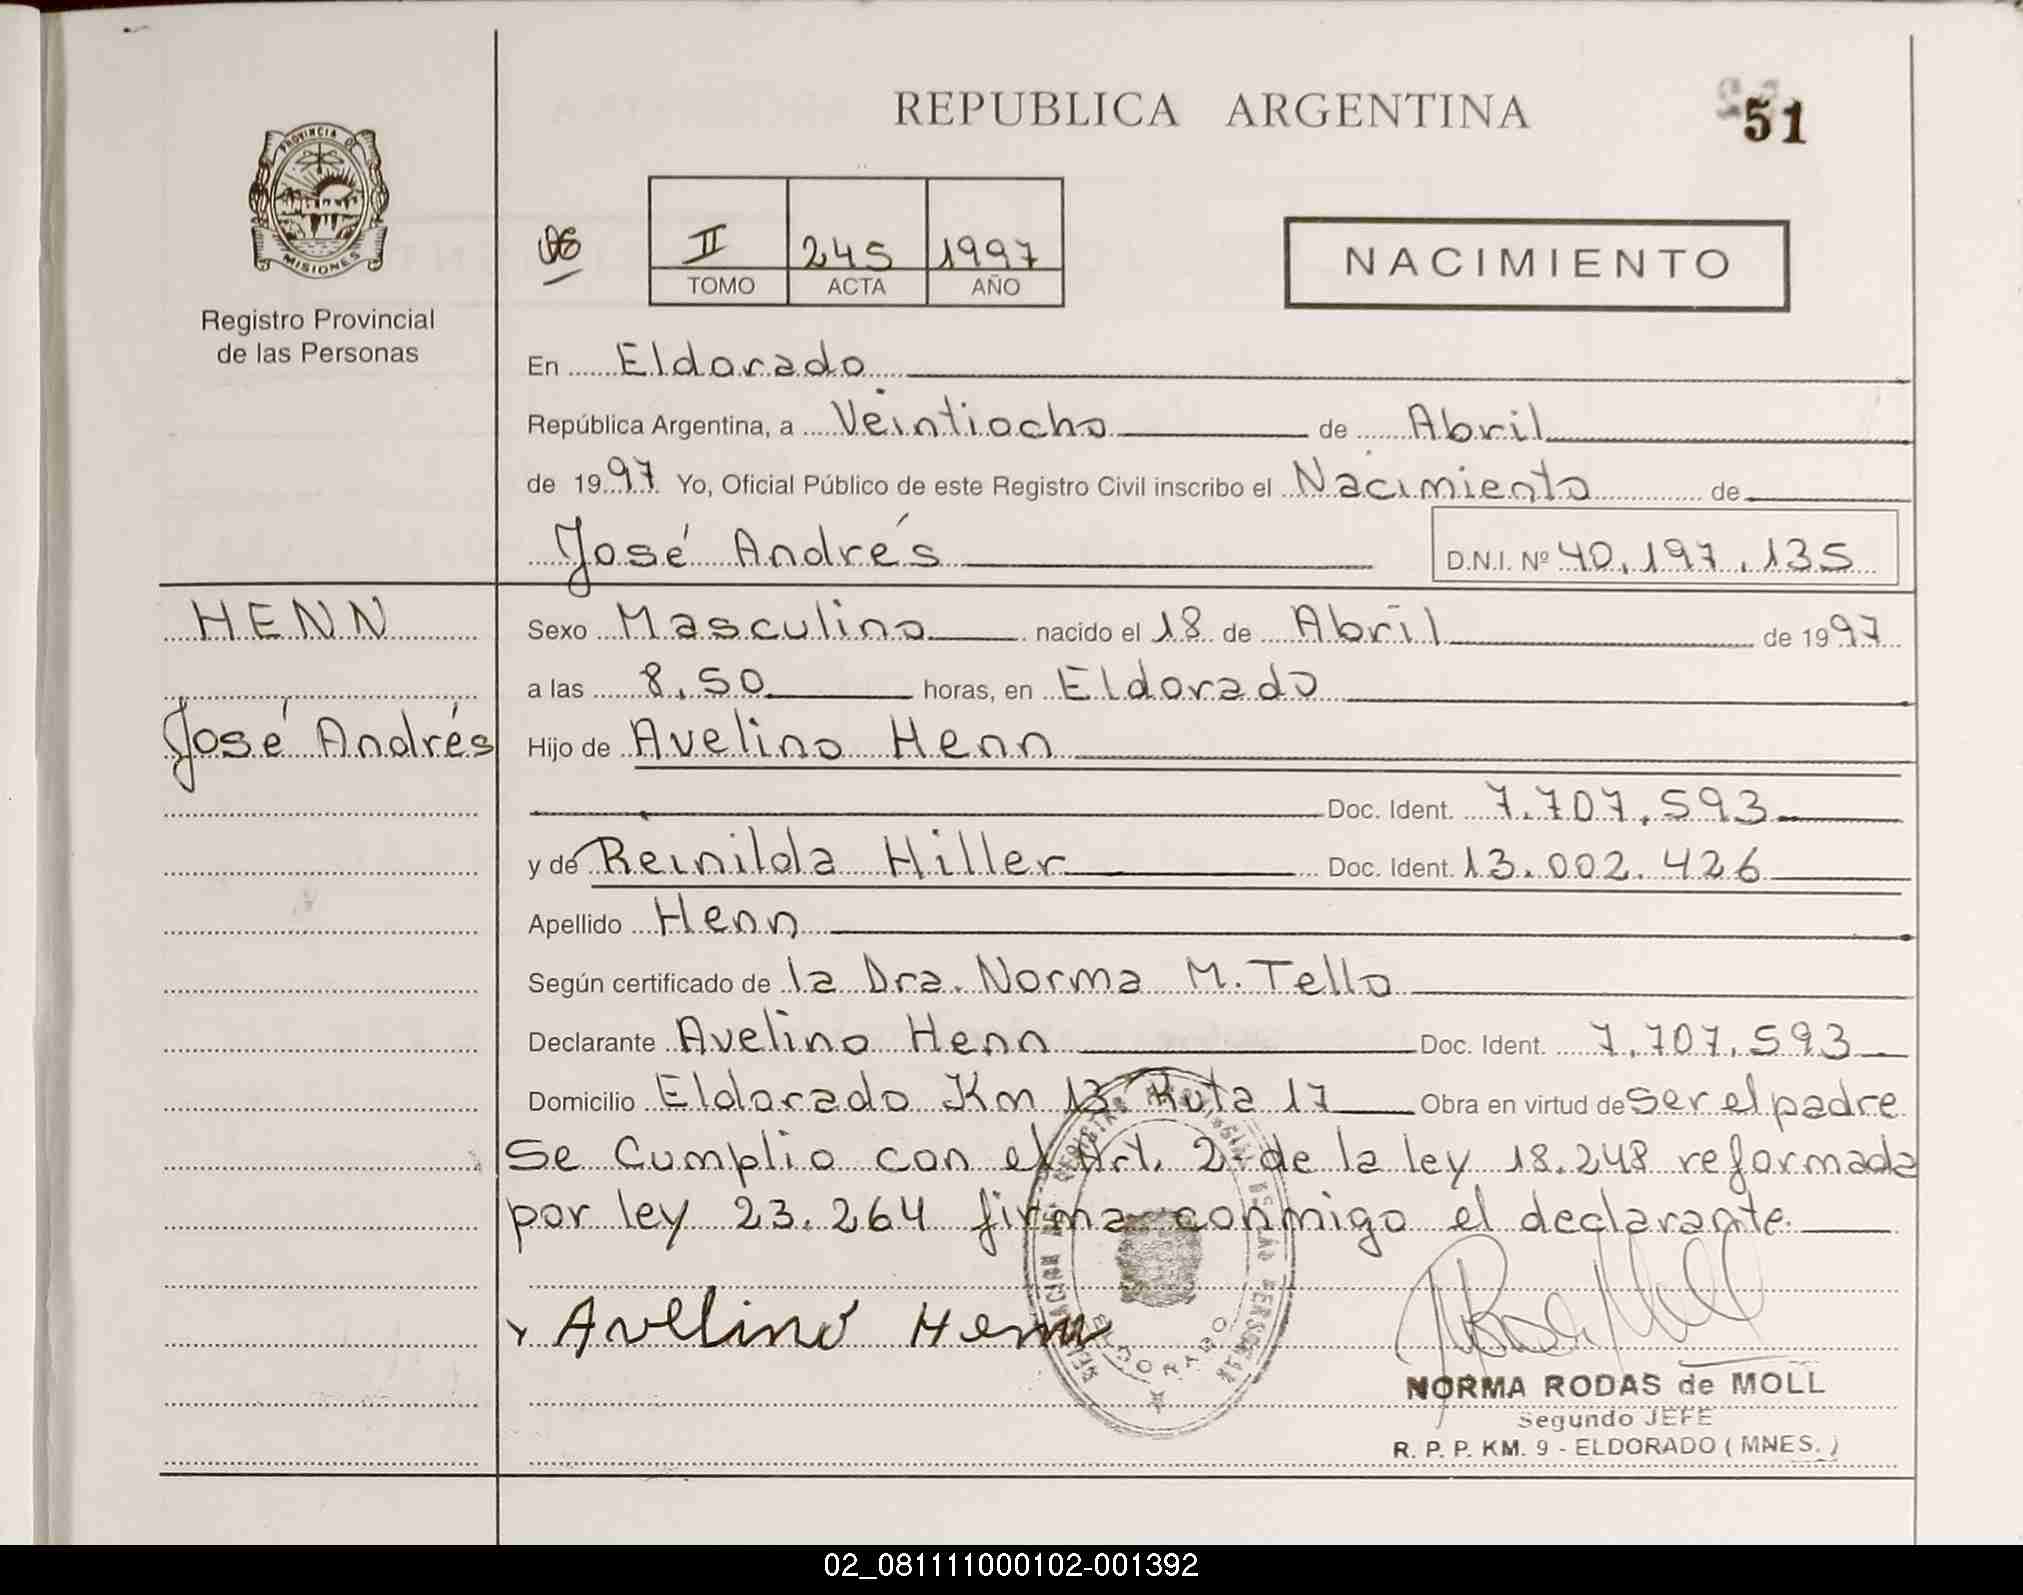 REPUBLICA ARGENTINA
51
PROVINCIA DE
MISIONES
Registro Provincial
de las Personas
II 245 1997
TOMO ACTA AÑO
NACIMIENTO
En Eldorado
República Argentina, a Veintiocho de Abril
de 1997 Yo, Oficial Público de este Registro Civil inscribo el Nacimiento de
José Andrés D.N.I. Nº 40.197.135
HENN
José Andrés
Sexo Masculino nacido el 18 de Abril de 1997
a las 8.50 horas, en Eldorado
Hijo de Avelino Henn
Doc. Ident. 7.707.593
y de Reinilda Hiller Doc. Ident. 13.002.426
Apellido Henn
Según certificado de la Dra. Norma M. Tello
Declarante Avelino Henn Doc. Ident. 7.707.593
Domicilio Eldorado Km 13. Ruta 17 Obra en virtud de ser el padre
Se Cumplio con el Art. 2 de la ley 18.248 reformada
por ley 23.264 firma conmigo el declarante.
Avelino Henn
ELDORADO
NORMA RODAS de MOLL
Segundo JEFE
R. P. P. KM. 9 - ELDORADO ( MNES. )
02_081111000102-001392